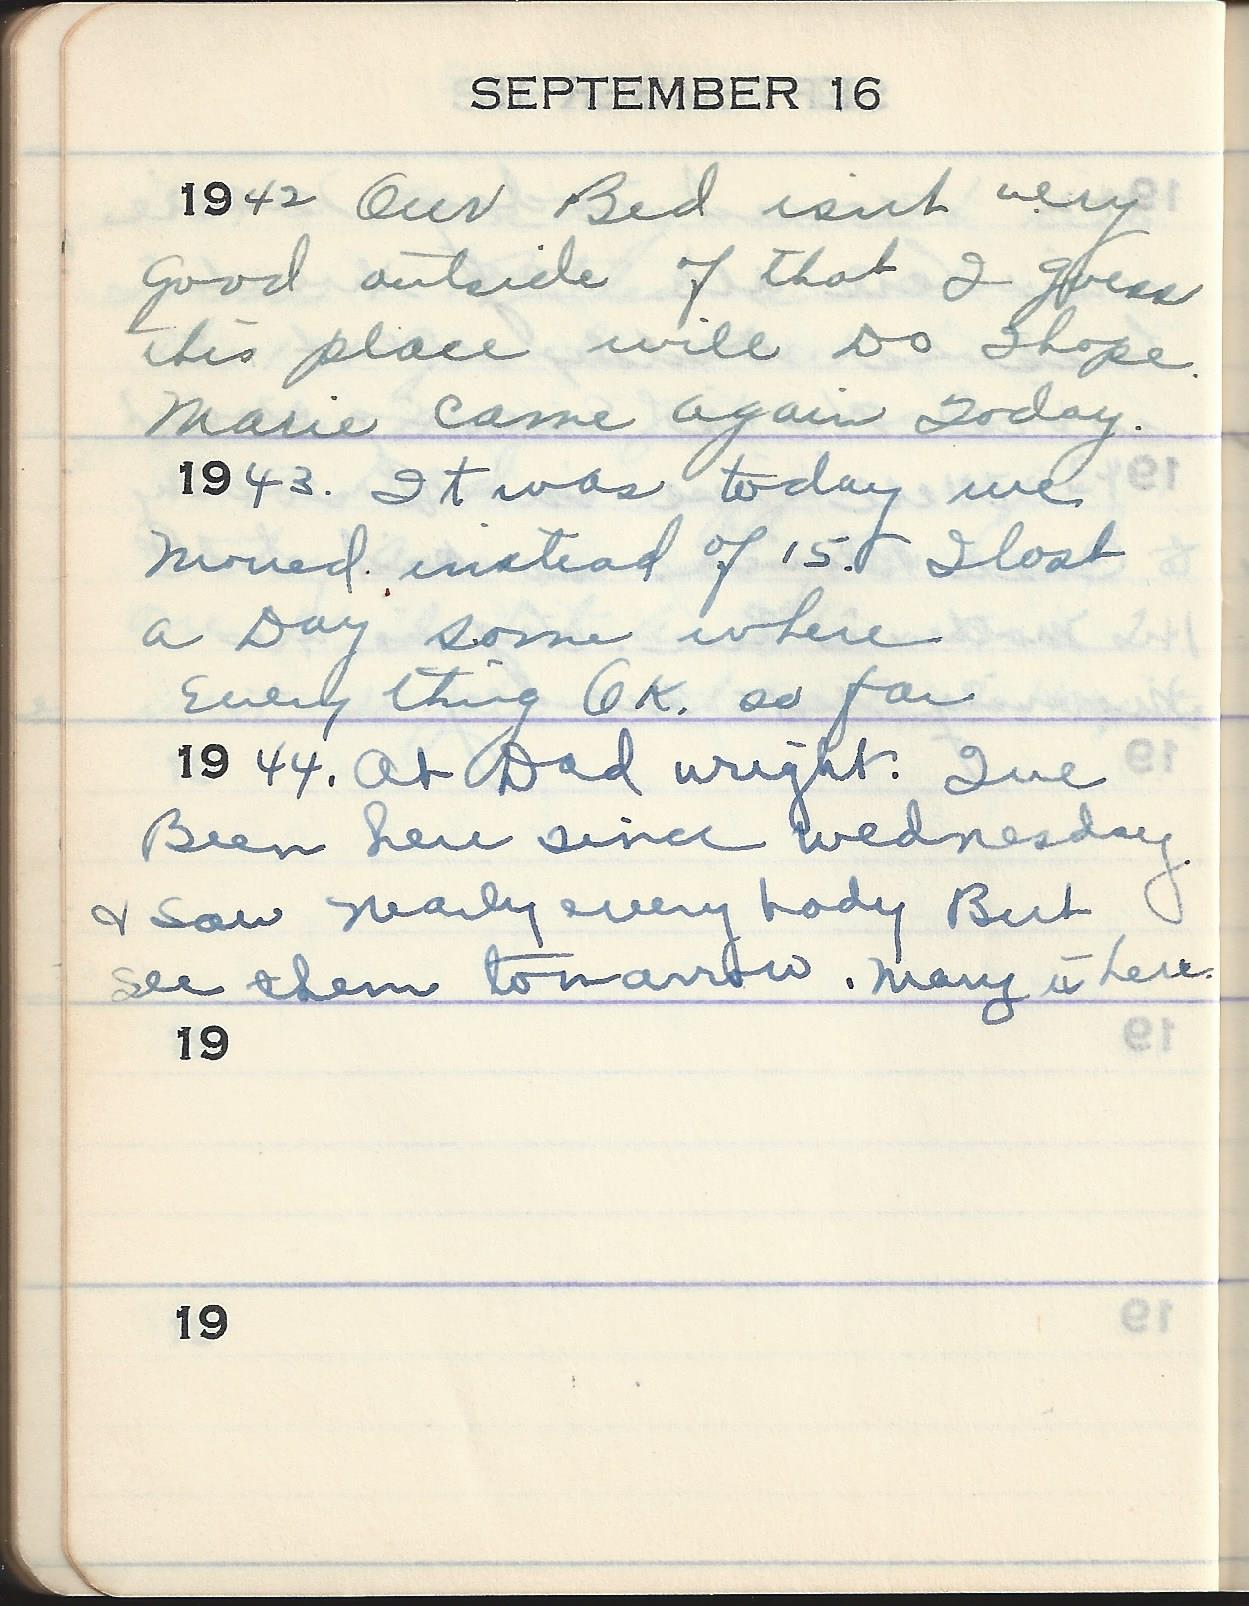 SEPTEMBER 16
1942 Our Bed isnt very
good outside of that I guess
this place will Do I hope.
Marie came again Today.
1943. It was today we
moved. instead of 15. I lost
a Day some where
Every thing OK. so far
1944. At Dad wright. Ive
Been here since wednesday.
& saw nearly every body But
see them tomarrow. Mary is here.
19
19